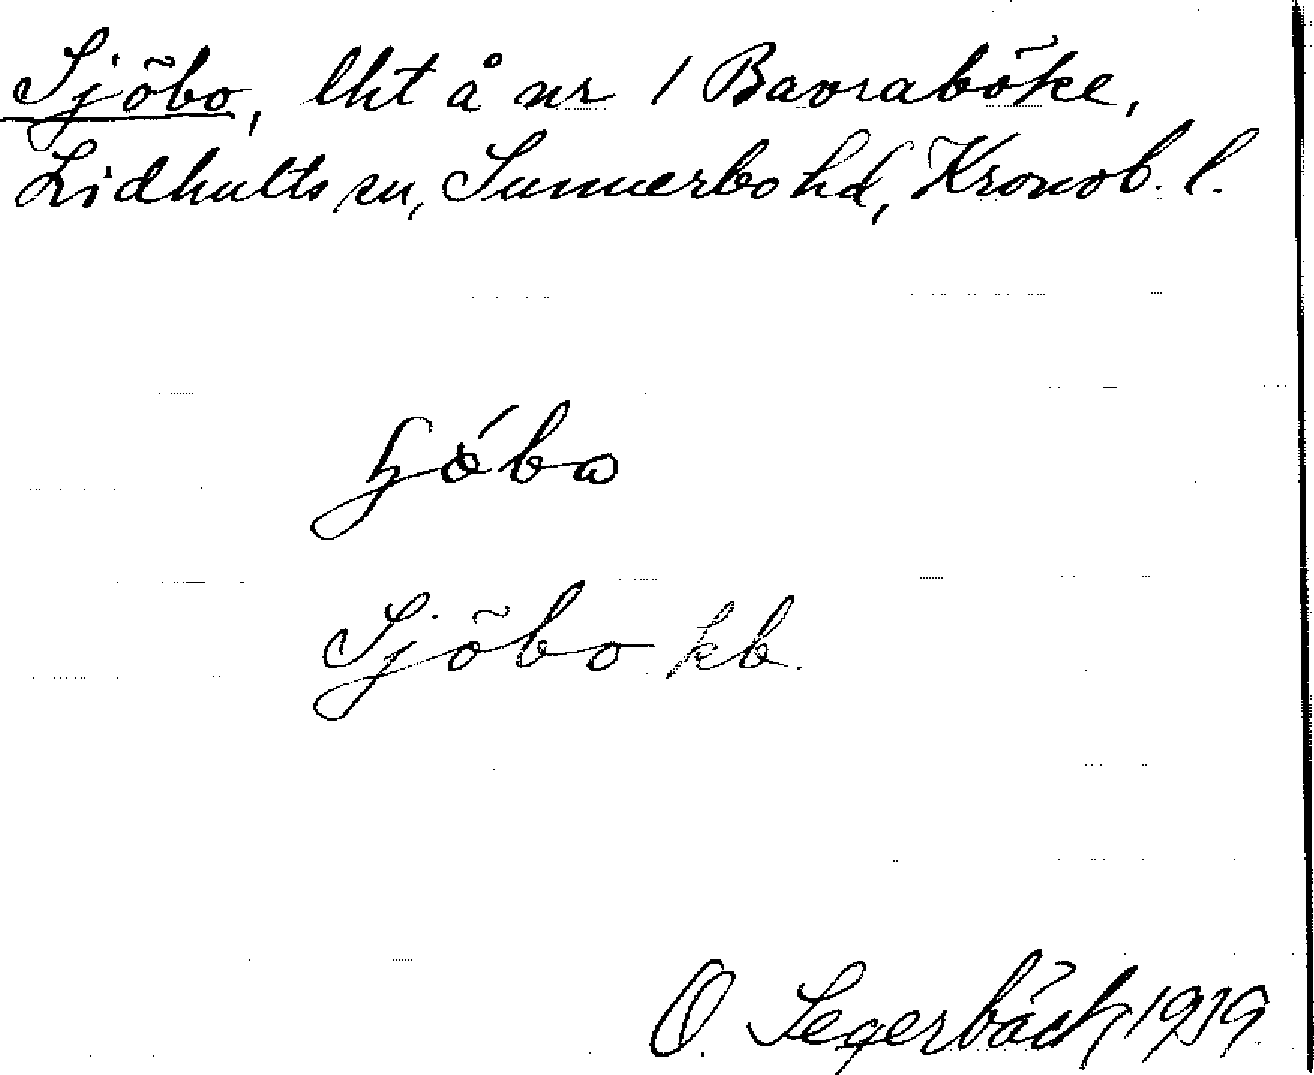 Sjöbo, lht å nr 1 Bavraböke,
Lidhults sn, Sunnerbo hd, Kronob. l.
Sjöbo kb.
O. Segerbäck 1939